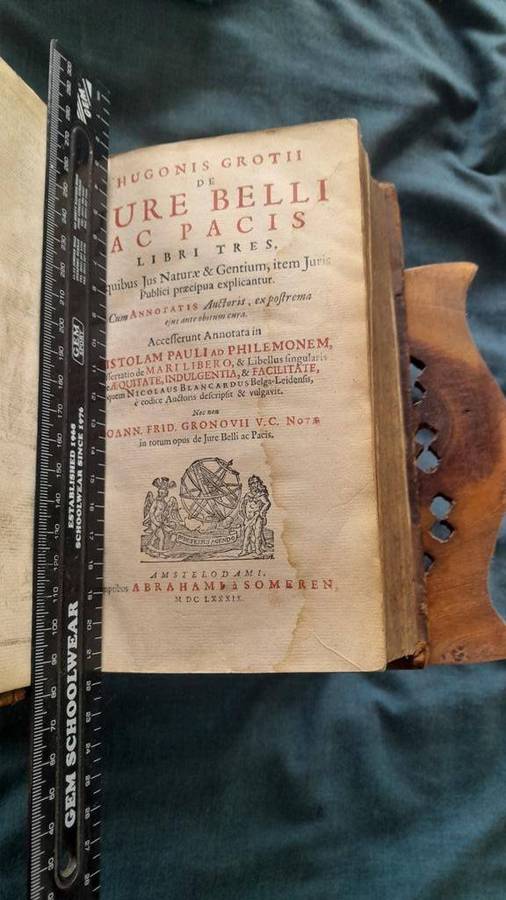 HUGONIS GROTII
DE
JURE BELLI
AC PACIS
LIBRI TRES,
quibus Jus Naturæ & Gentium, item Juris
Publici præcipua explicantur.
Cum ANNOTATIS Auctoris, ex postrema
ejus ante obitum cura.
Accesserunt Annotata in
EPISTOLAM PAULI AD PHILEMONEM,
de MARI LIBERO, & Libellus singularis
ÆQUITATE, INDULGENTIA, & FACILITATE,
quem NICOLAUS BLANCARDUS Belga-Leidensis,
è codice Auctoris descripsit & vulgavit.
Nec non
JOANN. FRID. GRONOVII V.C. NOTÆ
in totum opus de Jure Belli ac Pacis.
AMSTELODAMI,
ABRAHAMI à SOMEREN,
M DC LXXXIX.
GEM SCHOOLWEAR
ESTABLISHED 1968
SCHOOLWEAR SINCE 1976
GEM